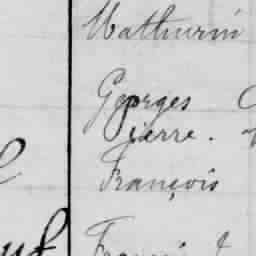 Mathurin
Georges
Pierre.
François